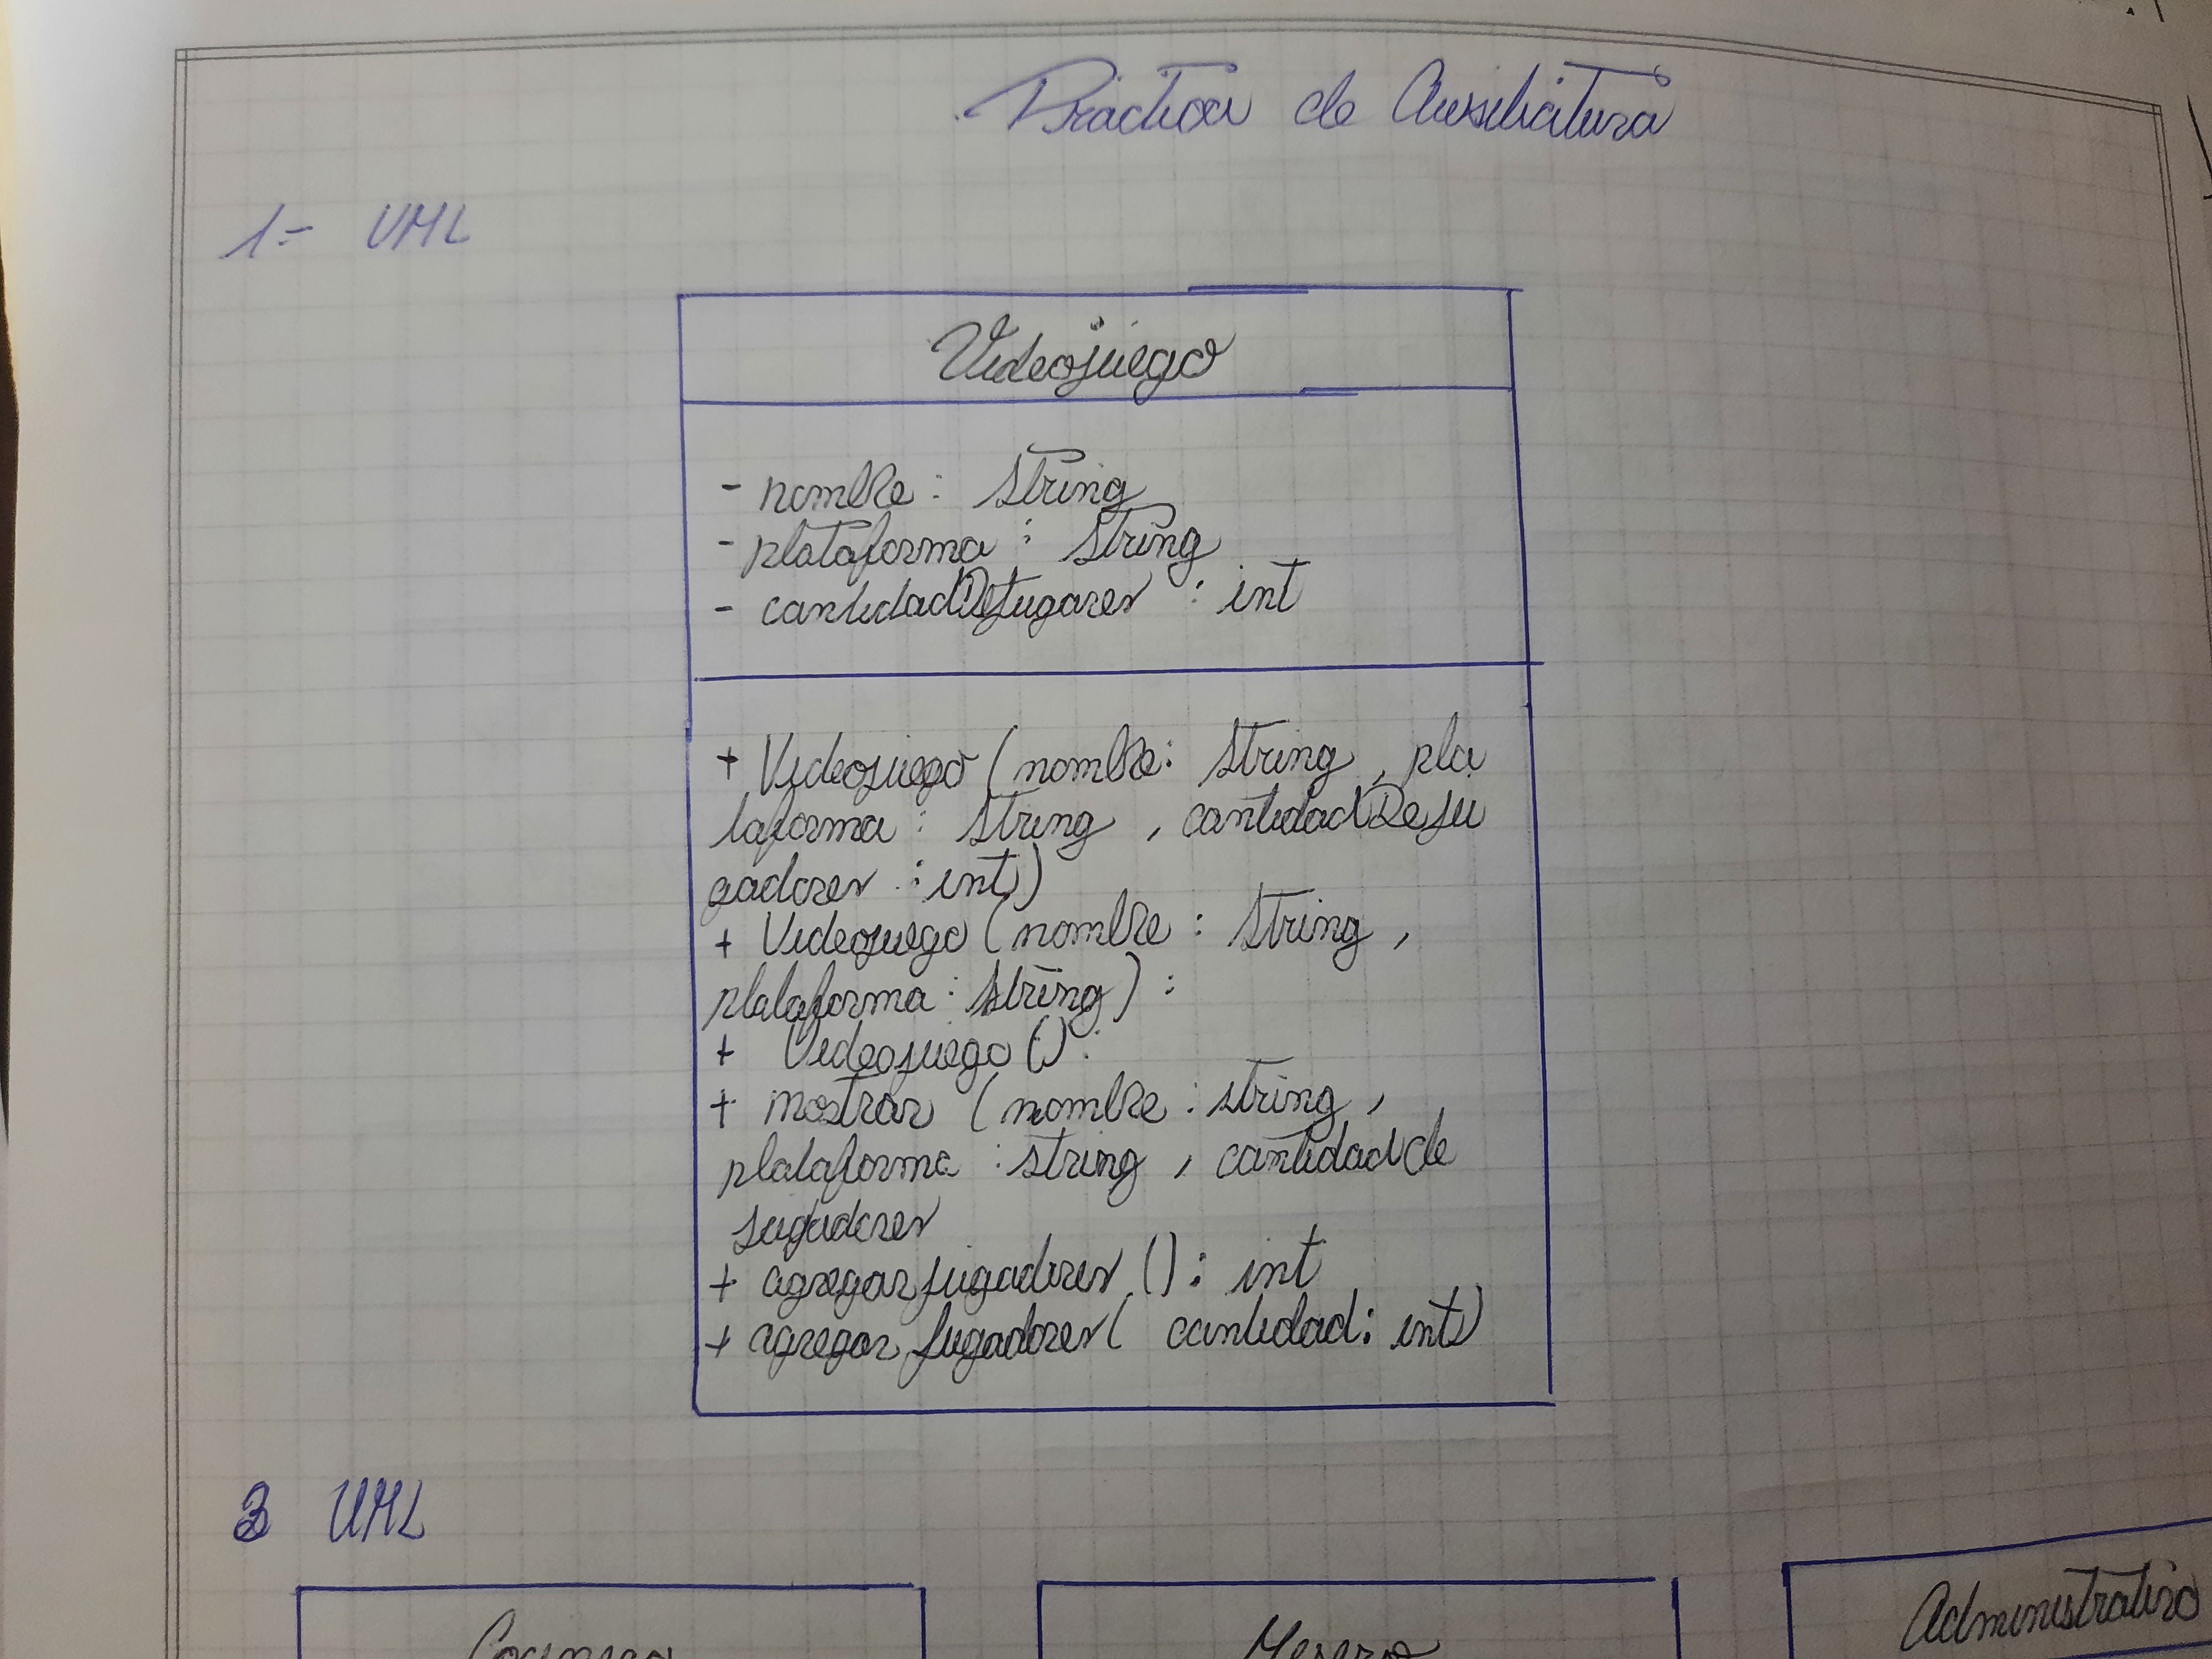 Practica de Ausiliatura
1.- UML
Videojuego
- nombre: string
- plataforma: string
- cantidadDeJugarer: int
+ Videojuego (nombre: string pla
taforma: string, cantidadDeju
gadorer: int)
+ Videojuego (nombre: string,
plataforma: string):
+ Videojuego():
+ mostrar (nombre: string,
plataforma: string, cantidadde
jugadorer
+ agregarjugadorer(): int
+ agregarjugadorer( cantidad: int)
2 UML
Cocinero
Mesero
Administrativo